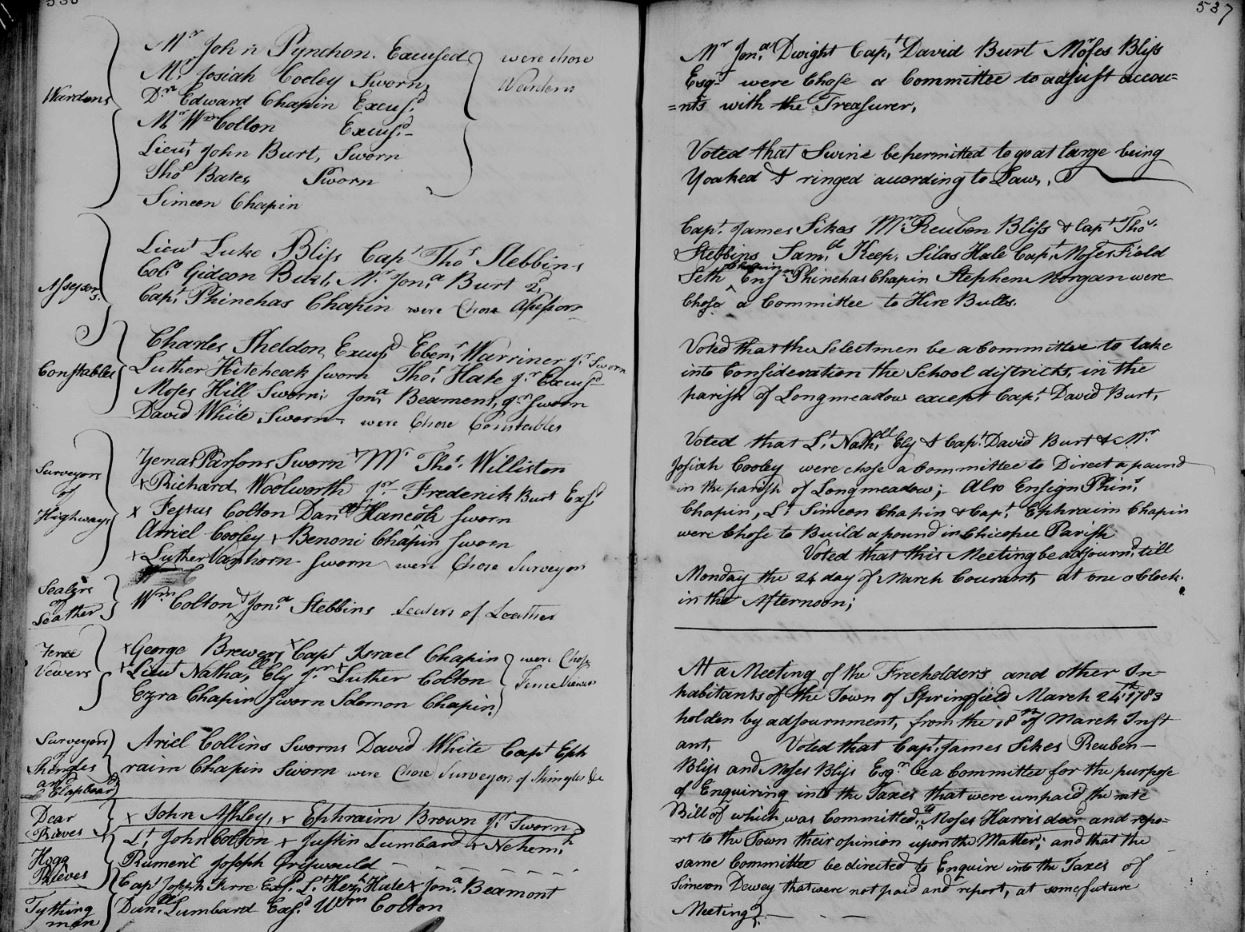 536
Wardens
Mr. John Pynchon. Excused
Mr. Josiah Cooley Sworn
Dn. Edward Chapin Excusd
Mr Wm Colton Excusd
Lieut John Burt, Sworn
Tho Bates Sworn
Simeon Chapin
were chose
Wardens
Assessors
Lieut Luke Bliss Capt Tho Stebbins
Colo Gideon Burt, Mr. Jona Burt 2,
Capt Phinehas Chapin were Chose Assessors
Constables
Charles Sheldon, Excusd Ebenr Warriner jr Sworn
Luther Hitchcock Sworn Thos Hale jr Excusd
Moses Hill Sworn; Jona Beament, jr Sworn
David White Sworn were Chose Constables
Surveyors
of
Highways
Zenas Parsons Sworn + Mr Tho. Williston
+ Richard Woolworth jr. Frederick Burt Exsd
x Festus Colton Danll Hancock Sworn
Arriel Cooley + Benoni Chapin Sworn
+ Luther Vanhorn Sworn were Chose Surveyors
Sealers
of
Leather
Wm Colton & Jona Stebbins Sealers of Leather
Fence
Vewers
x George Brewer, x Capt Israel Chapin
+ Lieut Nathall Ely jr + Luther Colton
Ezra Chapin Sworn Solomon Chapin
were Chose
Fence Viewers
Surveyors
of
Shingles
and Clapboard
Ariel Collins Sworn David White Capt Eph
raim Chapin Sworn were Chose Surveyors of Shingles &c
Dear
Rieves
x John Ashley, x Ephraim Brown jr Sworn
Hogg
Rieves
Lt John Colton + Justin Lumbard x Nehemh
Rumeril Joseph Griswauld
Tything
men
Capt Joseph Ferre Exsd. Lt Hezh Hale x Jona Beamont
Danll Lumbard Exsd Wm Colton
537
Mr Jona. Dwight Capt David Burt Moses Bliss
Esqr were Chose a Committee to adjust accou=
=nts with the Treasurer,
Voted that Swine be permitted to go at large being
Yoaked & ringed according to Law,
Capt. James Sikes Mr Reuben Bliss & Capt Tho.
Stebbins Saml Keep, Silas Hale Capt Moses Field
Seth Chapin Ens Phinehas Chapin Stephen Morgan were
Chose a Committee to Hire Bulls.
Voted that the Selectmen be a Committee to take
into Consideration the School districts, in the
parish of Longmeadow except Capt David Burt,
Voted that Lt. Nathll Ely & Capt David Burt & Mr
Josiah Cooley were chose a Committee to Direct a pound
in the parish of Longmeadow; Also Ensign Phins
Chapin, Lt Simeon Chapin & Capt Ephraim Chapin
were Chose to Build a pound in Chicopee Parish
Voted that this Meeting be adjournd till
Monday the 24 day of March Courant, at one o Clock
in the Afternoon;
At a Meeting of the Freeholders and other In-
habitants of the Town of Springfield March 24th 1783
holden by adjournment, from the 18th of March Inst
ant, Voted that Capt James Sikes Reuben
Bliss and Moses Bliss Esqr be a Committee for the purpose
of Enquiring into the Taxes that were unpaid the rate
Bill of which was Committed to Moses Harris and repo-
rt to the Town their opinion upon the Matter; and that the
same Committee be directed to Enquire into the Taxes of
Simeon Dewey that were not paid and report, at some future
Meeting